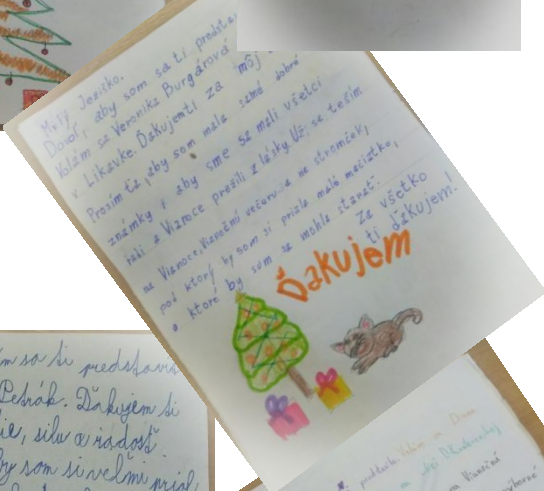 Milý Ježiško.
Dovoľ, aby som sa ti predsta
Volám sa Veronika Burgárová
v Likavke. Ďakujem ti za môj
Prosím ťa, aby som mala samé dobré
známky a aby sme sa mali všetci
radi a Vianoce prežili z lásky. Už sa teším
na Vianoce, Vianočnú večeru a na stromček,
pod ktorý by som si priala malé maciatko,
o ktoré by som sa mohla starať.
Za všetko
ti ďakujem!
Ďakujem
m sa ti predstavi
Petrák. Ďakujem ti
ie, silu a radosť.
by som si veľmi prial